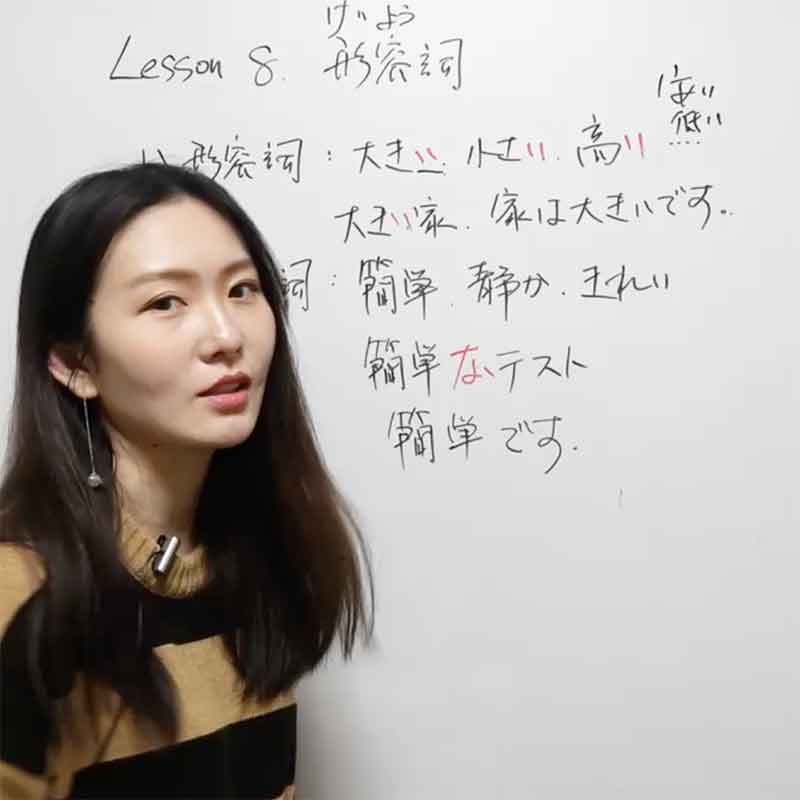 けいよう
Lesson 8. 形容詞
い形容詞：大きい、小さい、高い 安い 低い
大きい家、家は大きいです。
詞：簡単、静か、きれい
簡単なテスト
簡単です。